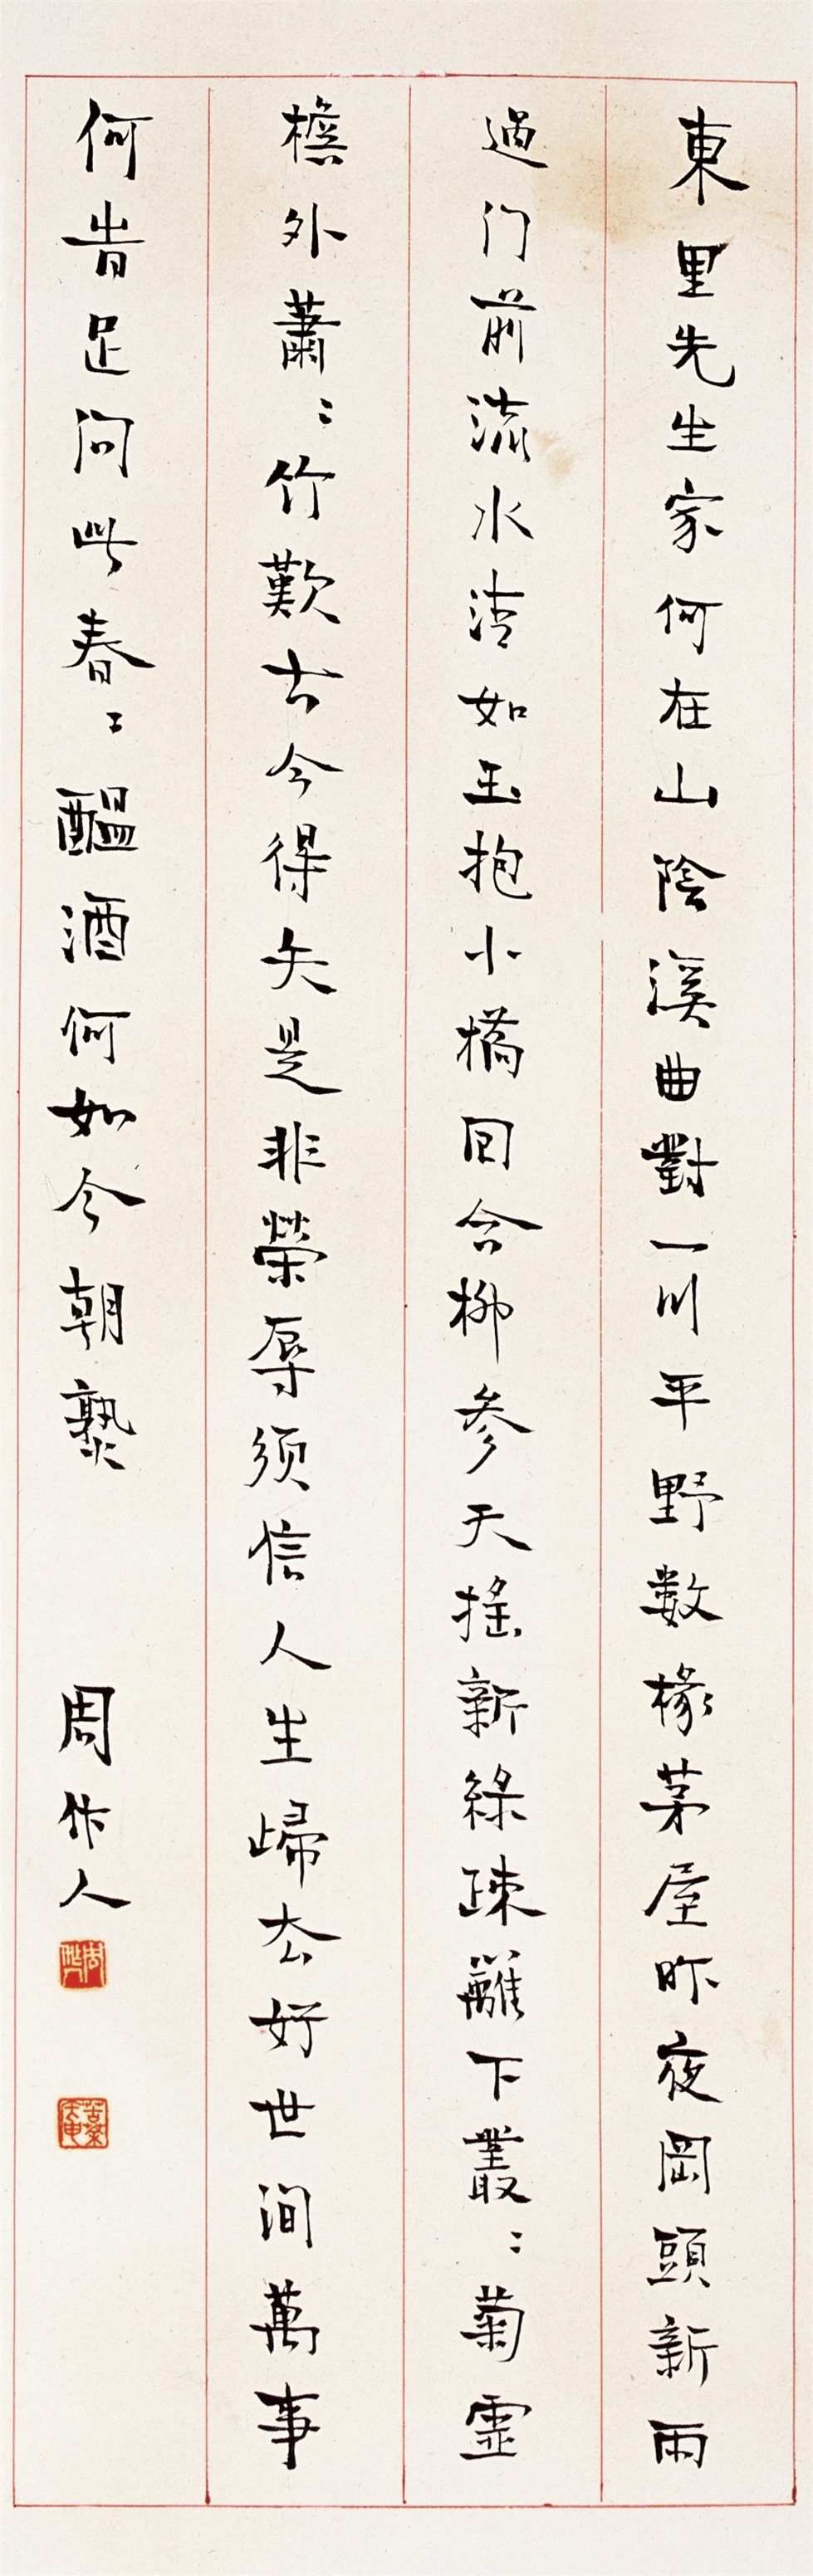 東里先生家何在山陰溪曲對一川平野数椽茅屋昨夜岡頭新雨
過门前流水清如玉抱小橋囘合柳参天摇新綠疎籬下叢〻菊虗
檐外蕭〻竹歎古今得失是非榮辱须信人生歸去好世间萬事
何旹足问此春〻醖酒何如今朝熟
周作人